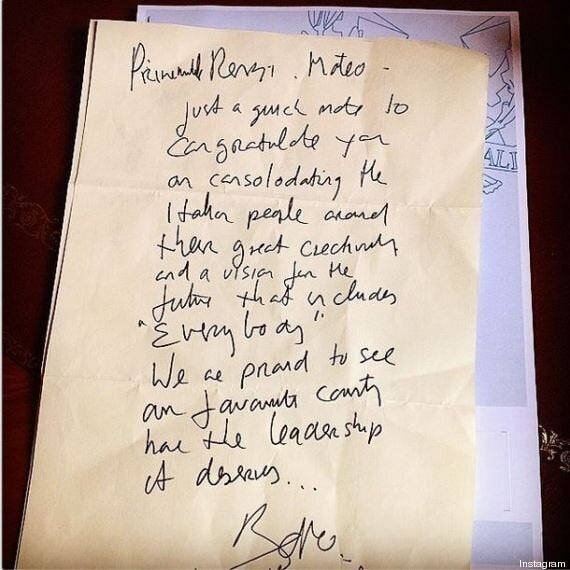 Primeminister Renzi . Mateo -
just a quick note to
congratulate you
on consolodating the
Italian people around
their great creativity
and a vision for the
future that includes
"Everybody"
We are proud to see
our favourite country
have the leadership
it deserves...
Bono
ALI
Instagram